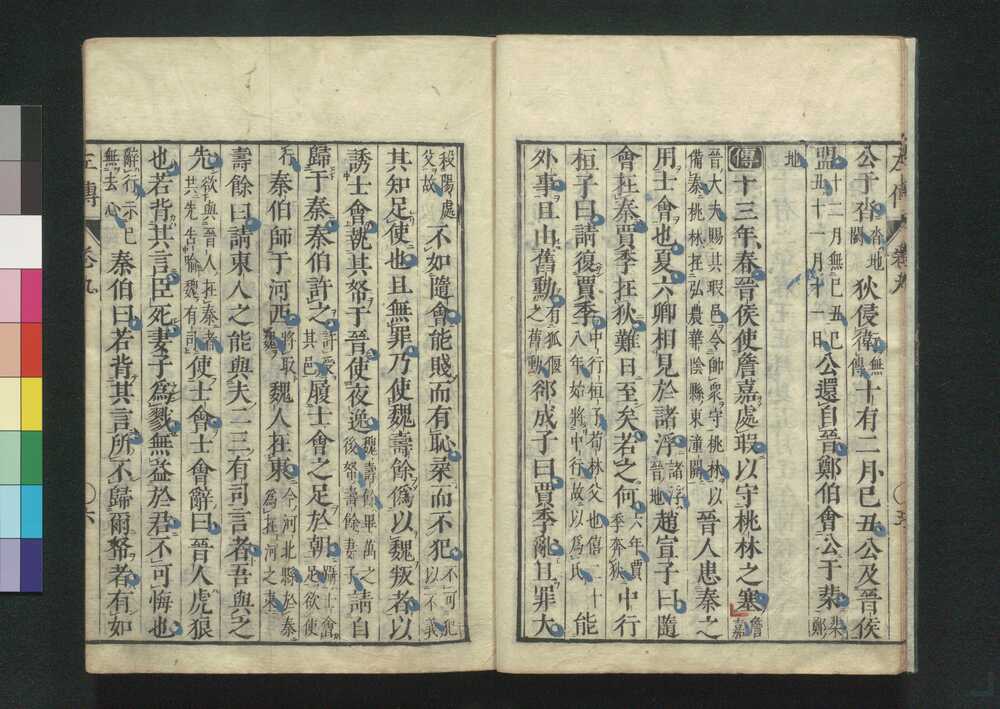 公于沓 沓地闕 狄侵衛 無傳 十有二月己丑公及晉侯
盟 十二月無己丑己丑十一月十一日 公還自晉鄭伯會公于棐 棐鄭
地
傳 十三年春晉侯使詹嘉處瑕以守桃林之塞 詹嘉
晉大夫賜其瑕邑令帥衆守桃林以備秦桃林在弘農華陰縣東潼關 晉人患秦之
用士會也夏六卿相見於諸浮 諸浮晉地 趙宣子曰隨
會在秦賈季在狄難日至矣若之何 六年賈季奔狄 中行
桓子曰請復賈季 中行桓子荀林父也僖二十八年始將中行故以爲氏 能
外事且由舊勳 有狐偃之舊勳 郤成子曰賈季亂且罪大
左傳 卷九
殺陽處父故 不如隨會能賤而有恥柔而不犯 不可犯以不義
其知足使也且無罪乃使魏壽餘僞以魏叛者以
誘士會執其帑于晉使夜逸 魏壽餘畢萬之後帑壽餘妻子 請自
歸于秦秦伯許之 許受其邑 履士會之足於朝 躡士會足欲使
行 秦伯師于河西 將取魏 魏人在東 今河北縣於秦爲在河之東
壽餘曰請東人之能與夫二三有司言者吾與之
先 欲與晉人在秦者共先告喻魏有司 使士會士會辭曰晉人虎狼
也若背其言臣死妻子爲戮無益於君不可悔也
辭行示己無去心 秦伯曰若背其言所不歸爾帑者有如
左傳 卷九 六